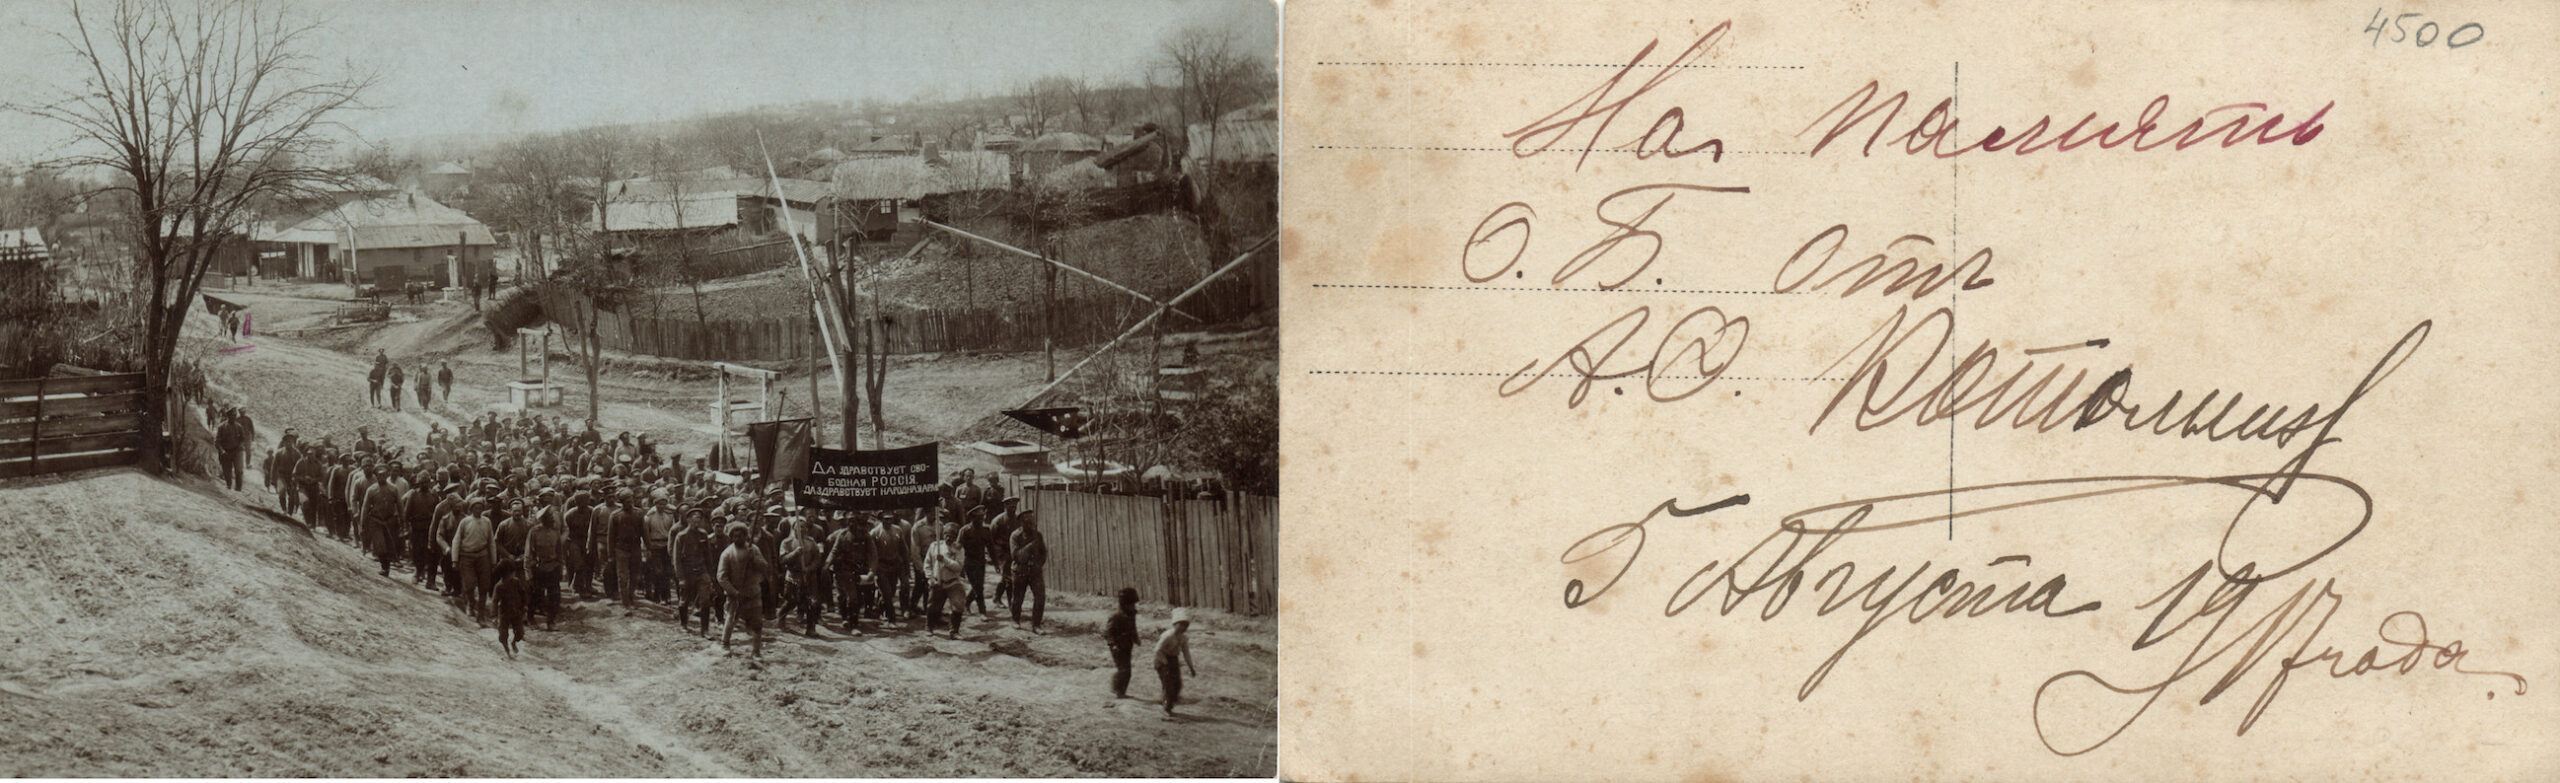 ДА ЗДРАВСТВУЕТ СВО-
БОДНАЯ РОССІЯ.
ДА ЗДРАВСТВУЕТ НАРОДНАЯ АРМ
4500
На память
О. Б. отъ
А. Ф.
5 Августа 1917 года.